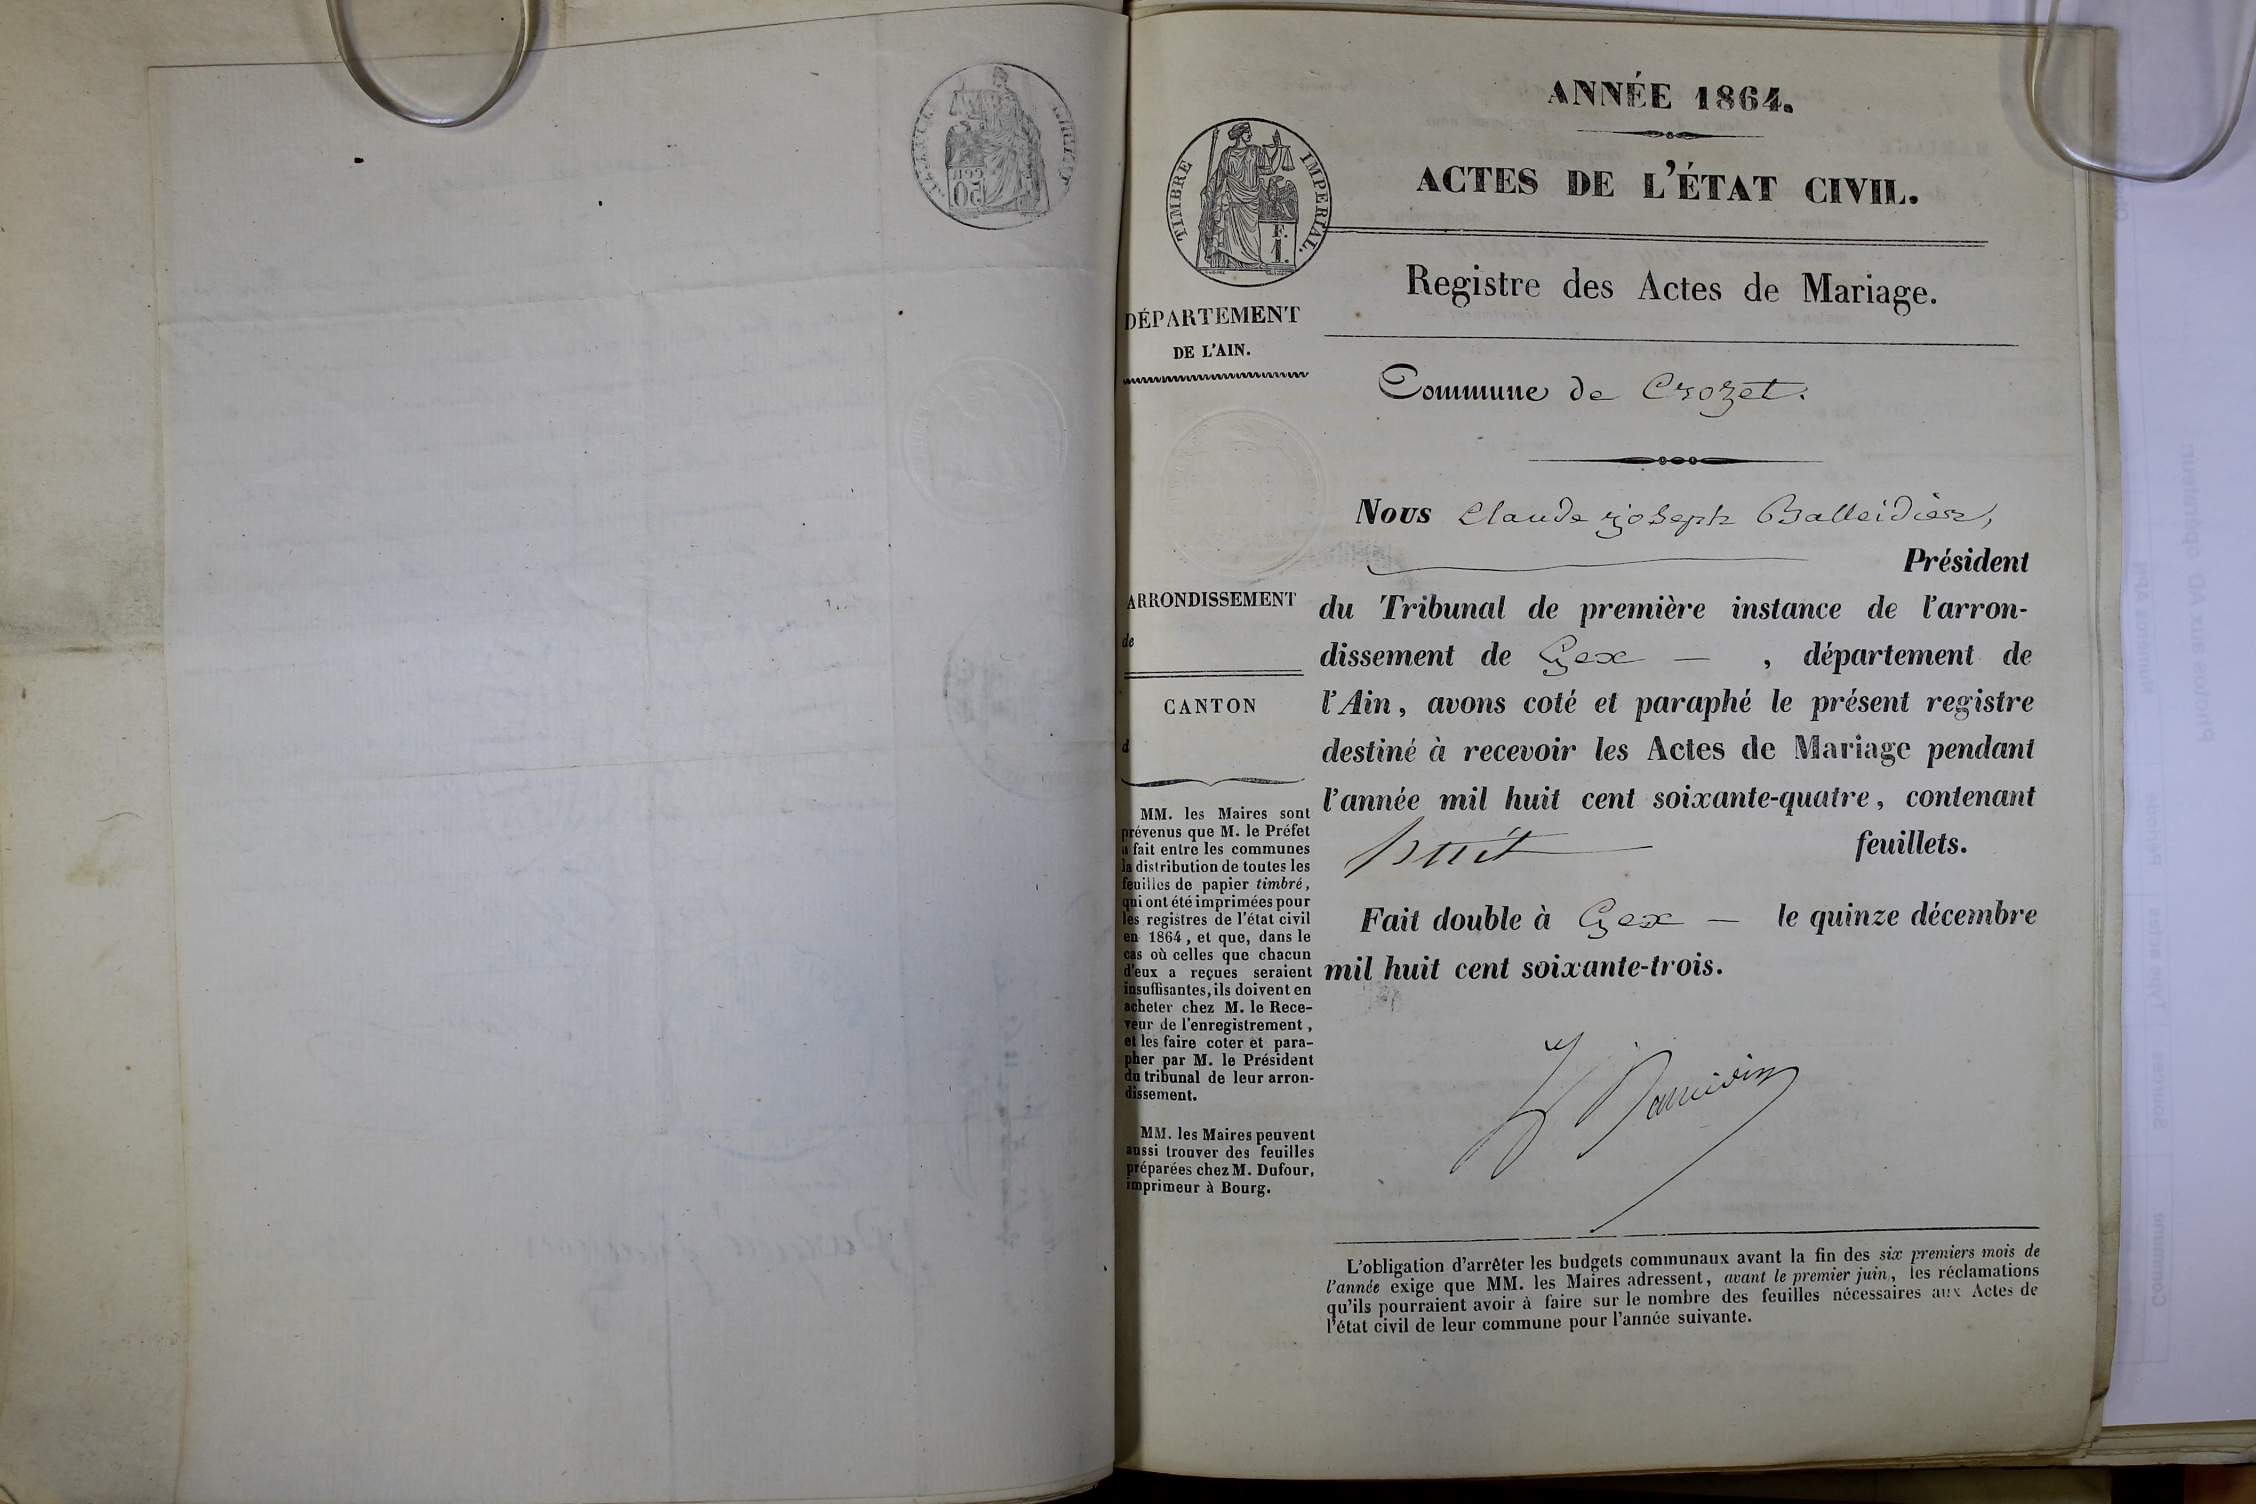 ANNÉE 1864.
ACTES DE L'ÉTAT CIVIL.
TIMBRE IMPERIAL.
F.
1.
Registre des Actes de Mariage.
DÉPARTEMENT
DE L'AIN.
Commune de Crozet.
Nous Claude Joseph Balleidier,
Président
du Tribunal de première instance de l'arron-
dissement de Gex — , département de
l'Ain, avons coté et paraphé le présent registre
destiné à recevoir les Actes de Mariage pendant
l'année mil huit cent soixante-quatre, contenant
huit feuillets.
Fait double à Gex — le quinze décembre
mil huit cent soixante-trois.
ARRONDISSEMENT
de
CANTON
d
MM. les Maires sont
prévenus que M. le Préfet
a fait entre les communes
la distribution de toutes les
feuilles de papier timbré,
qui ont été imprimées pour
les registres de l'état civil
en 1864, et que, dans le
cas où celles que chacun
d'eux a reçues seraient
insuffisantes, ils doivent en
acheter chez M. le Rece-
veur de l'enregistrement,
et les faire coter et para-
pher par M. le Président
du tribunal de leur arron-
dissement.
MM. les Maires peuvent
aussi trouver des feuilles
préparées chez M. Dufour,
imprimeur à Bourg.
L'obligation d'arrêter les budgets communaux avant la fin des six premiers mois de
l'année exige que MM. les Maires adressent, avant le premier juin, les réclamations
qu'ils pourraient avoir à faire sur le nombre des feuilles nécessaires aux Actes de
l'état civil de leur commune pour l'année suivante.